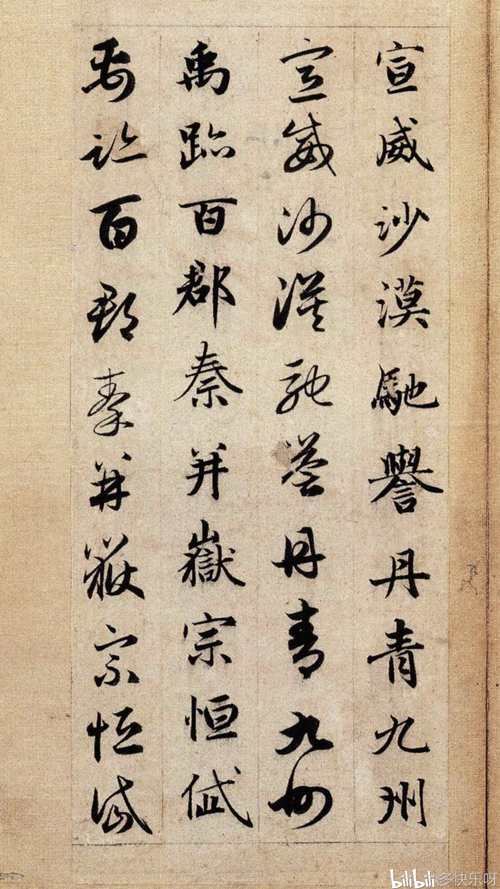 宣威沙漠馳譽丹青九州
宣威沙漠馳譽丹青九州
禹跡百郡秦并嶽宗恒岱
禹跡百郡秦并嶽宗恒岱
bilibili @多快乐呀